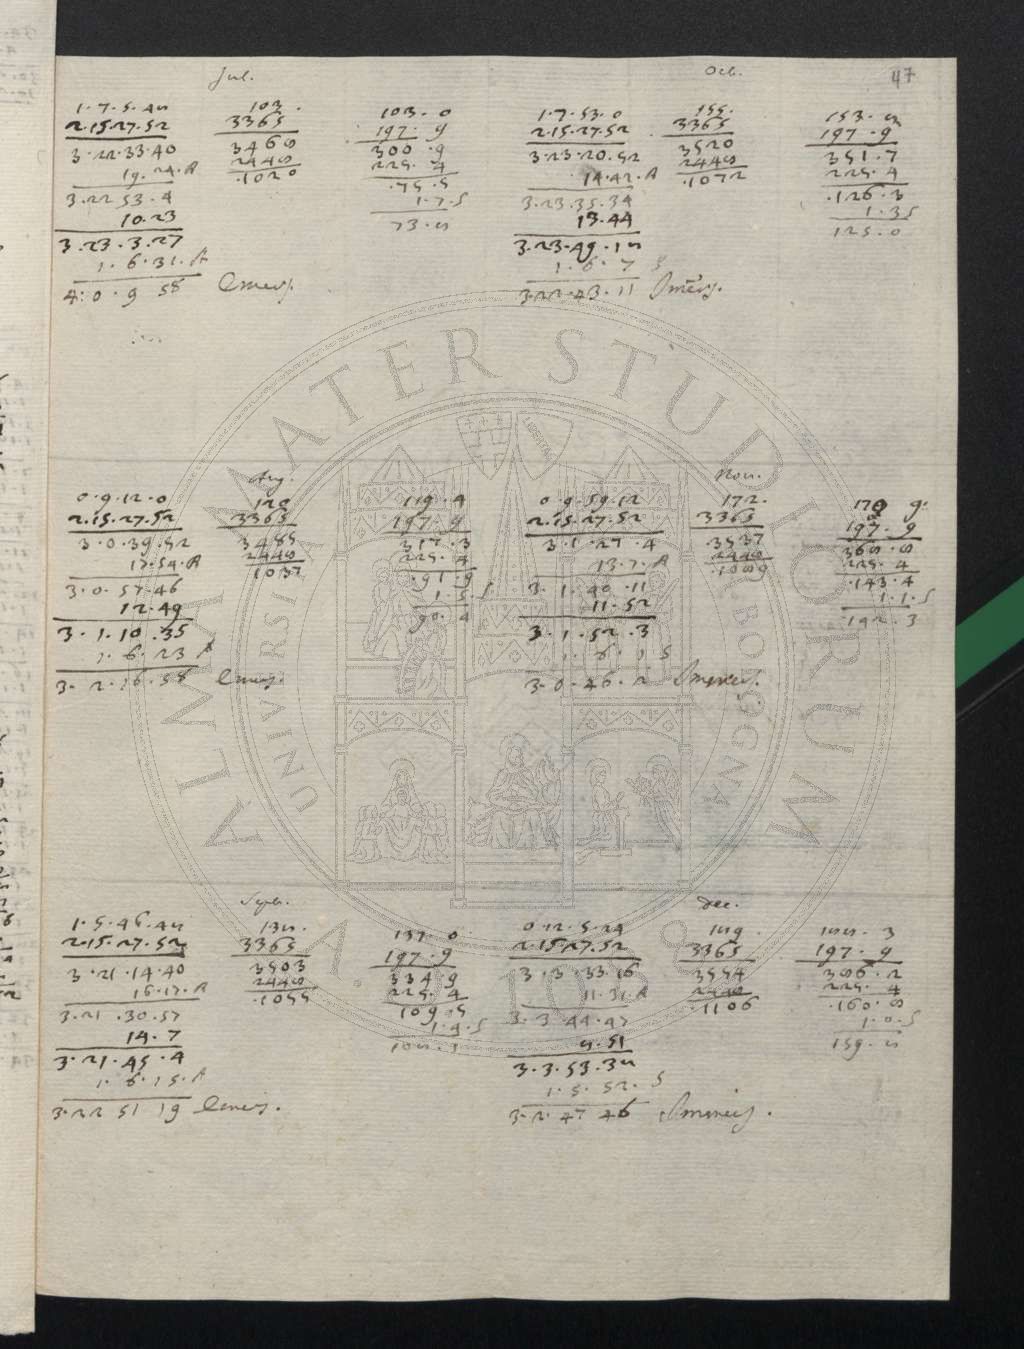 47
Jul.
1.7.5.48
2.15.27.52
3.22.33.40
19.24.A
3.22 53.4
10.23
3.23.3.27
1.6.31.A
4.0.9 58 Emers.
103.
3365
3468
2448
.1020
103.0
197.9
300.9
225.4
.75.5
1.7.S
73.8
Oct.
1.7.53.0
2.15.27.52
3.23.20.52
14.42.A
3.23.35.34
13.44
3.23.49.18
1.6.7 S
3.22.43.11 Immers.
155.
3365
3520
2448
.1072
153.8
197.9
351.7
225.4
.126.3
1.3S
125.0
Aug.
0.9.12.0
2.15.27.52
3.0.39.52
17.54.A
3.0.57.46
12.49
3.1.10.35
1.6.23 A
3.2.16.58 Emers.
120
3365
3485
2448
1037
119.4
197.9
317.3
225.4
.91.9
1.5.S
90.4
Nov.
0.9.59.12
2.15.27.52
3.1.27.4
13.7.A
3.1.40.11
11.52
3.1.52.3
1.6.1 S
3.0.46.2 Immers.
172.
3365
3537
2448
.1089
170 9.
197.9
368.8
225.4
.143.4
1.1.S
142.3
Sept.
1.5.46.48
2.15.27.52
3.21.14.40
16.17.A
3.21.30.57
14.7
3.21.45.4
1.6.15.A
3.22 51 19 Emers.
138.
3365
3503
2448
.1055
137.0
197.9
334.9
225.4
109.5
1.4.S
108.1
Dec.
0.12.5.24
2.15.27.52
3.3.33.16
11.31.A
3.3.44.47
8.51
3.3.53.38
1.5.52.S
3.2.47 46 Immers.
189.
3365
3554
2448
.1106
188.3
197.9
386.2
225.4
.160.8
1.0.S
159.8
ALMA MATER STUDIORUM
A.D. 1088